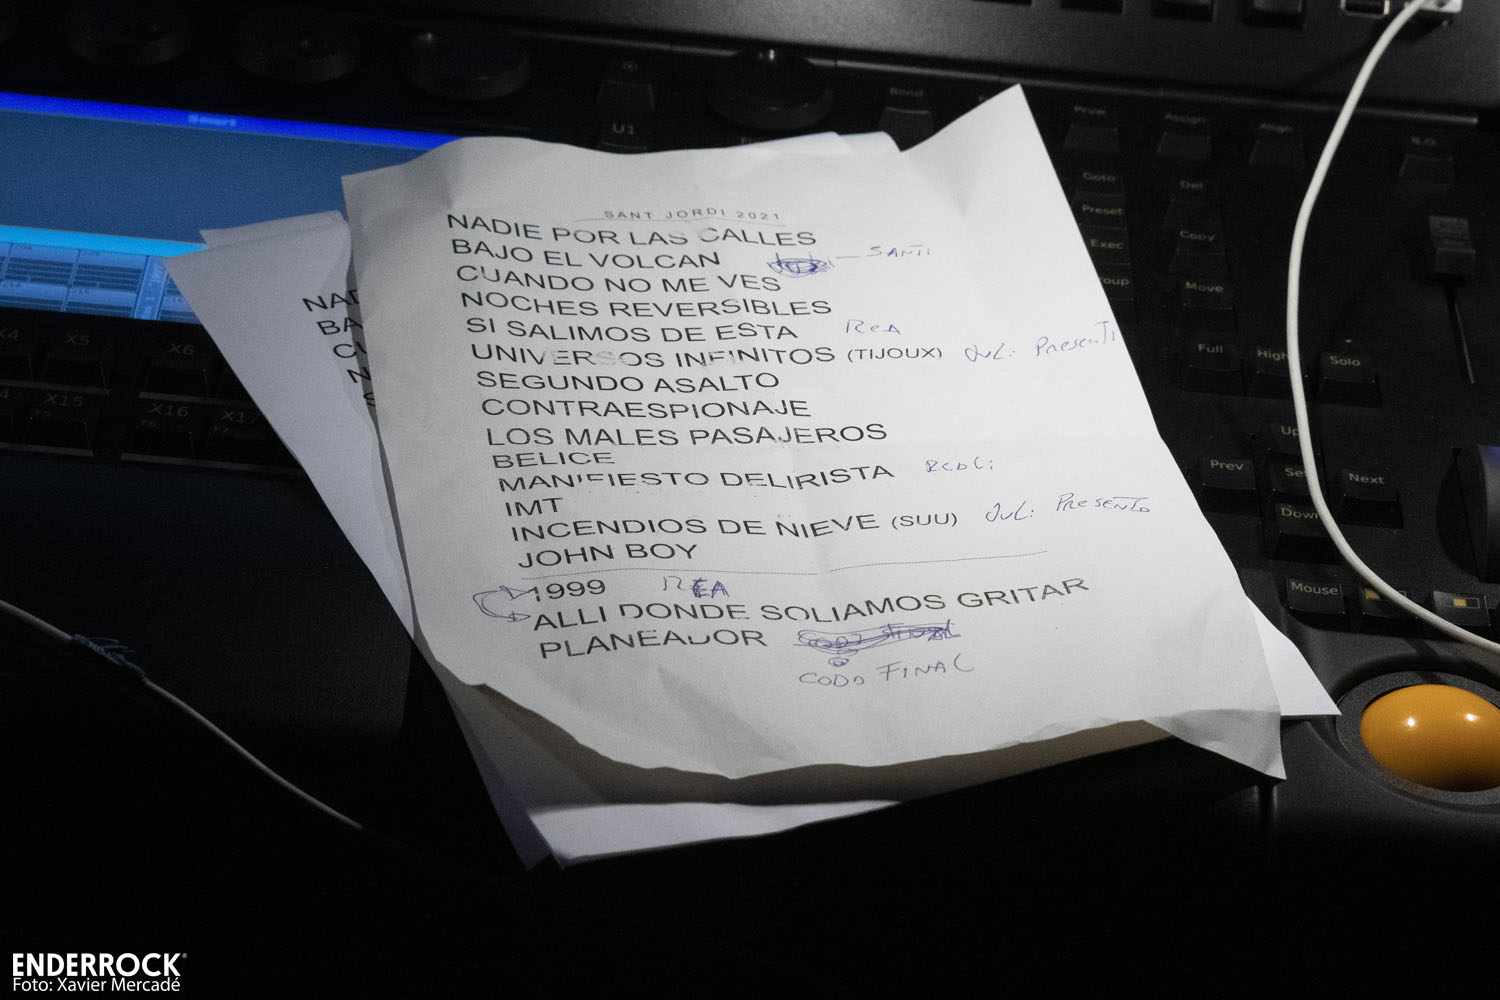 Smart
U1
Blind
Prvw
Assign
Align
B.O.
Goto
Del
Preset
Exec
Copy
Move
Full
High
Solo
Up
Prev
Set
Next
Down
Mouse
X4
X5
X6
X15
X16
X17
SANT JORDI 2021
NADIE POR LAS CALLES
BAJO EL VOLCAN — SANTI
CUANDO NO ME VES
NOCHES REVERSIBLES
SI SALIMOS DE ESTA REA
UNIVERSOS INFINITOS (TIJOUX) JUL: PRESENTI
SEGUNDO ASALTO
CONTRAESPIONAJE
LOS MALES PASAJEROS
BELICE
MANIFIESTO DELIRISTA
IMT
INCENDIOS DE NIEVE (SUU) JUL: PRESENTO
JOHN BOY
1999 REA
ALLI DONDE SOLIAMOS GRITAR
PLANEADOR
CODO FINAL
NAD
BA
CU
N
S
ENDERROCK
Foto: Xavier Mercadé